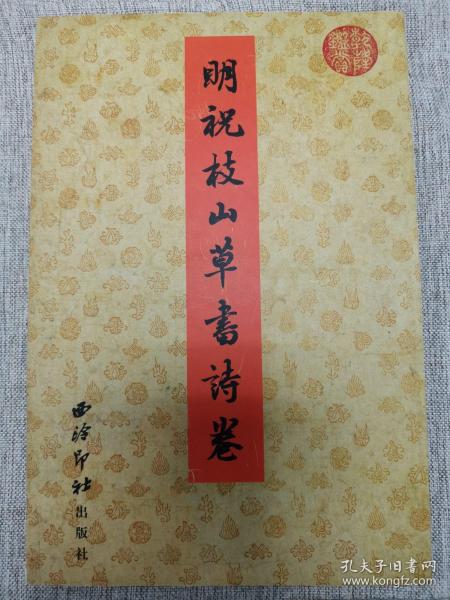 明祝枝山草書詩卷
乾隆鑑賞
西泠印社出版社
孔夫子旧书网
www.kongfz.com